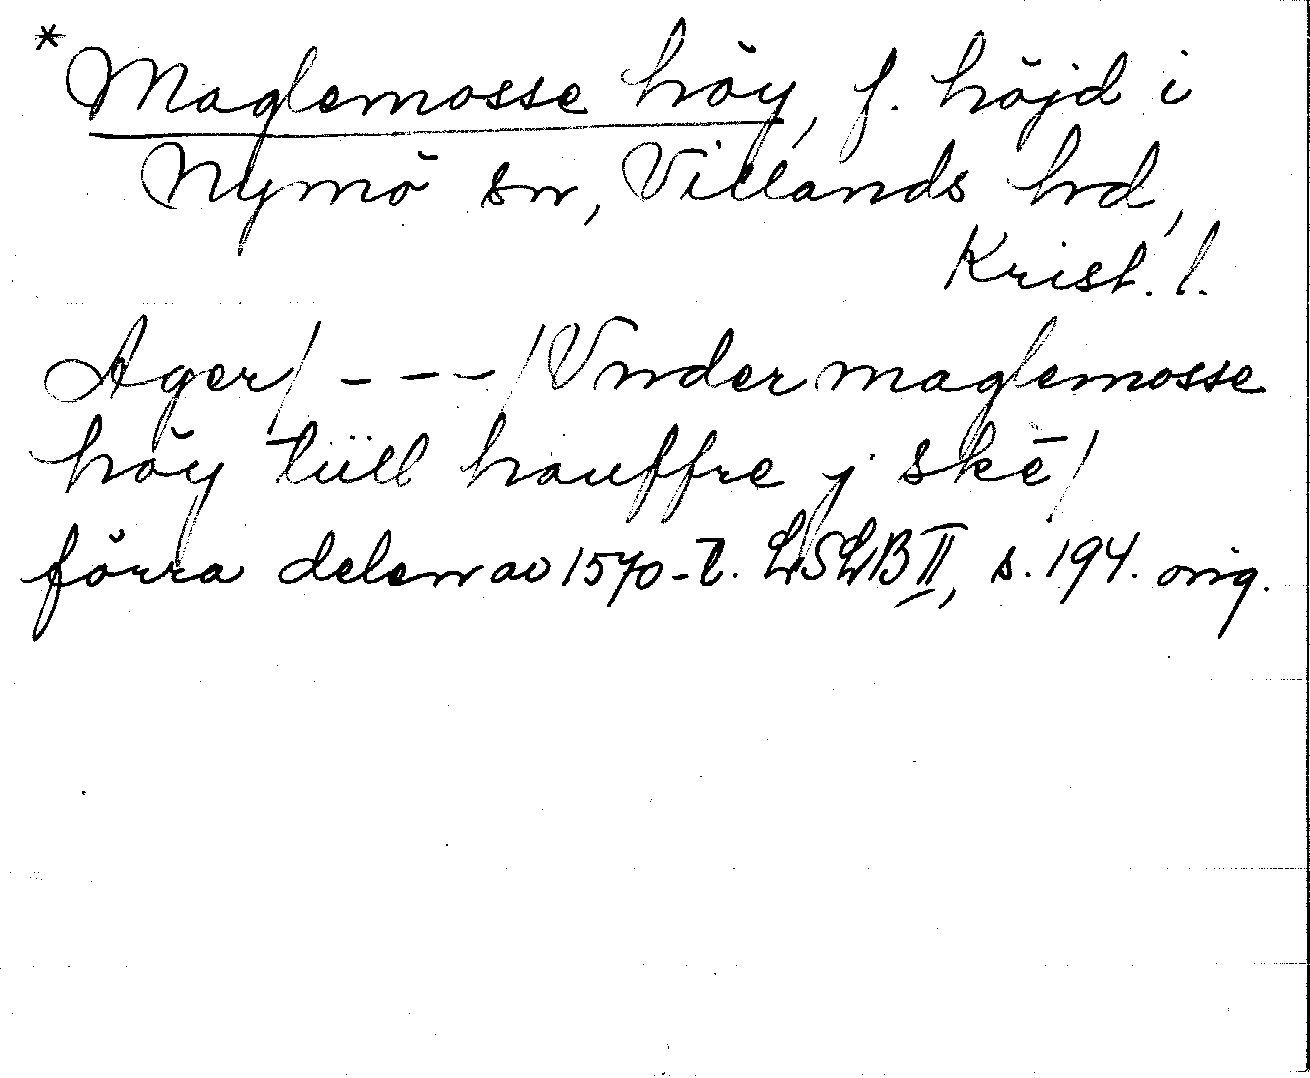 * Maglemosse höy, f. höjd i
Nymö sn, Villands hd,
Krist. l.
Ager/ --- /Vnder maglemosse
höy tiill hauffre j skē/
förra delen av 1570-t. LSLB II, s. 194. orig.